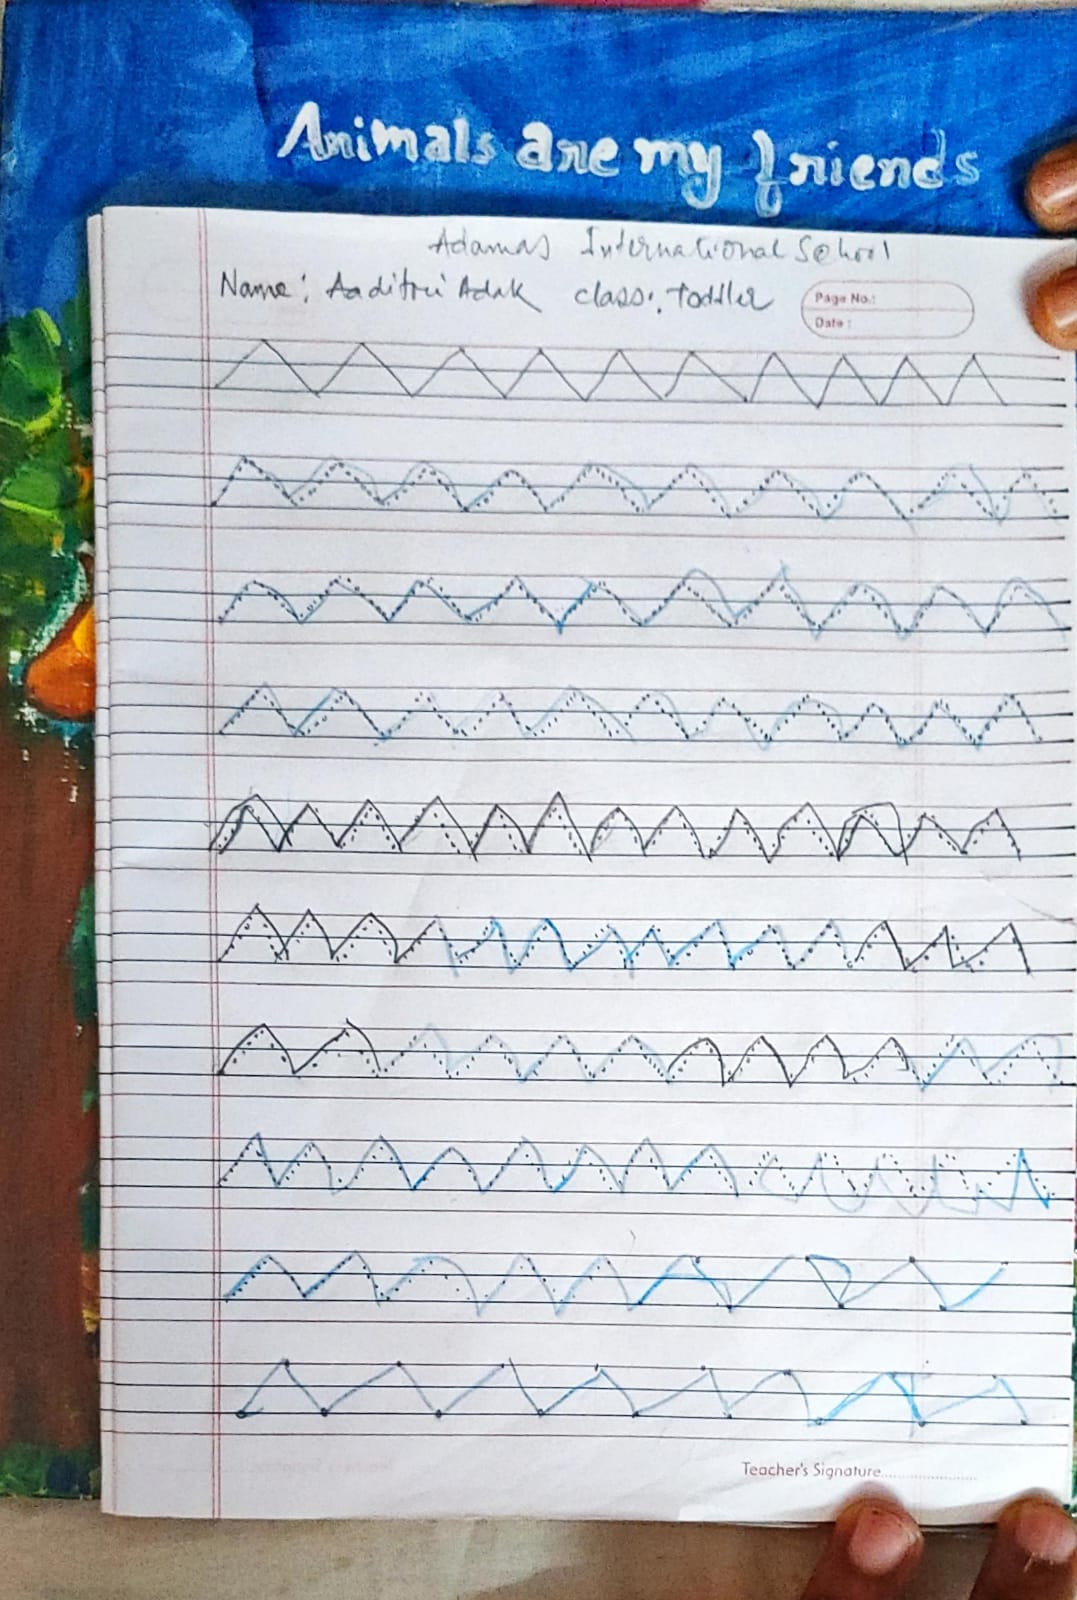 Animals are my friends
Adamas International School
Name: Aaditri Adak class: Toddler
Page No.:
Date :
Teacher's Signature........................